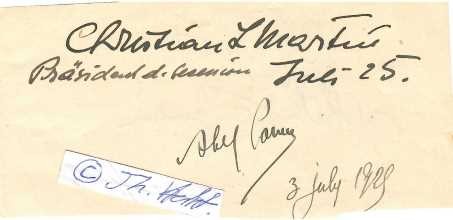 Christian L Martin
Präsident d. Secession Juli 25.
Abel Pann
© Th. Hecht.
3 july 1925